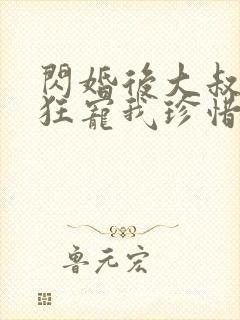 閃婚後大叔
狂寵我珍惜
魯元宏